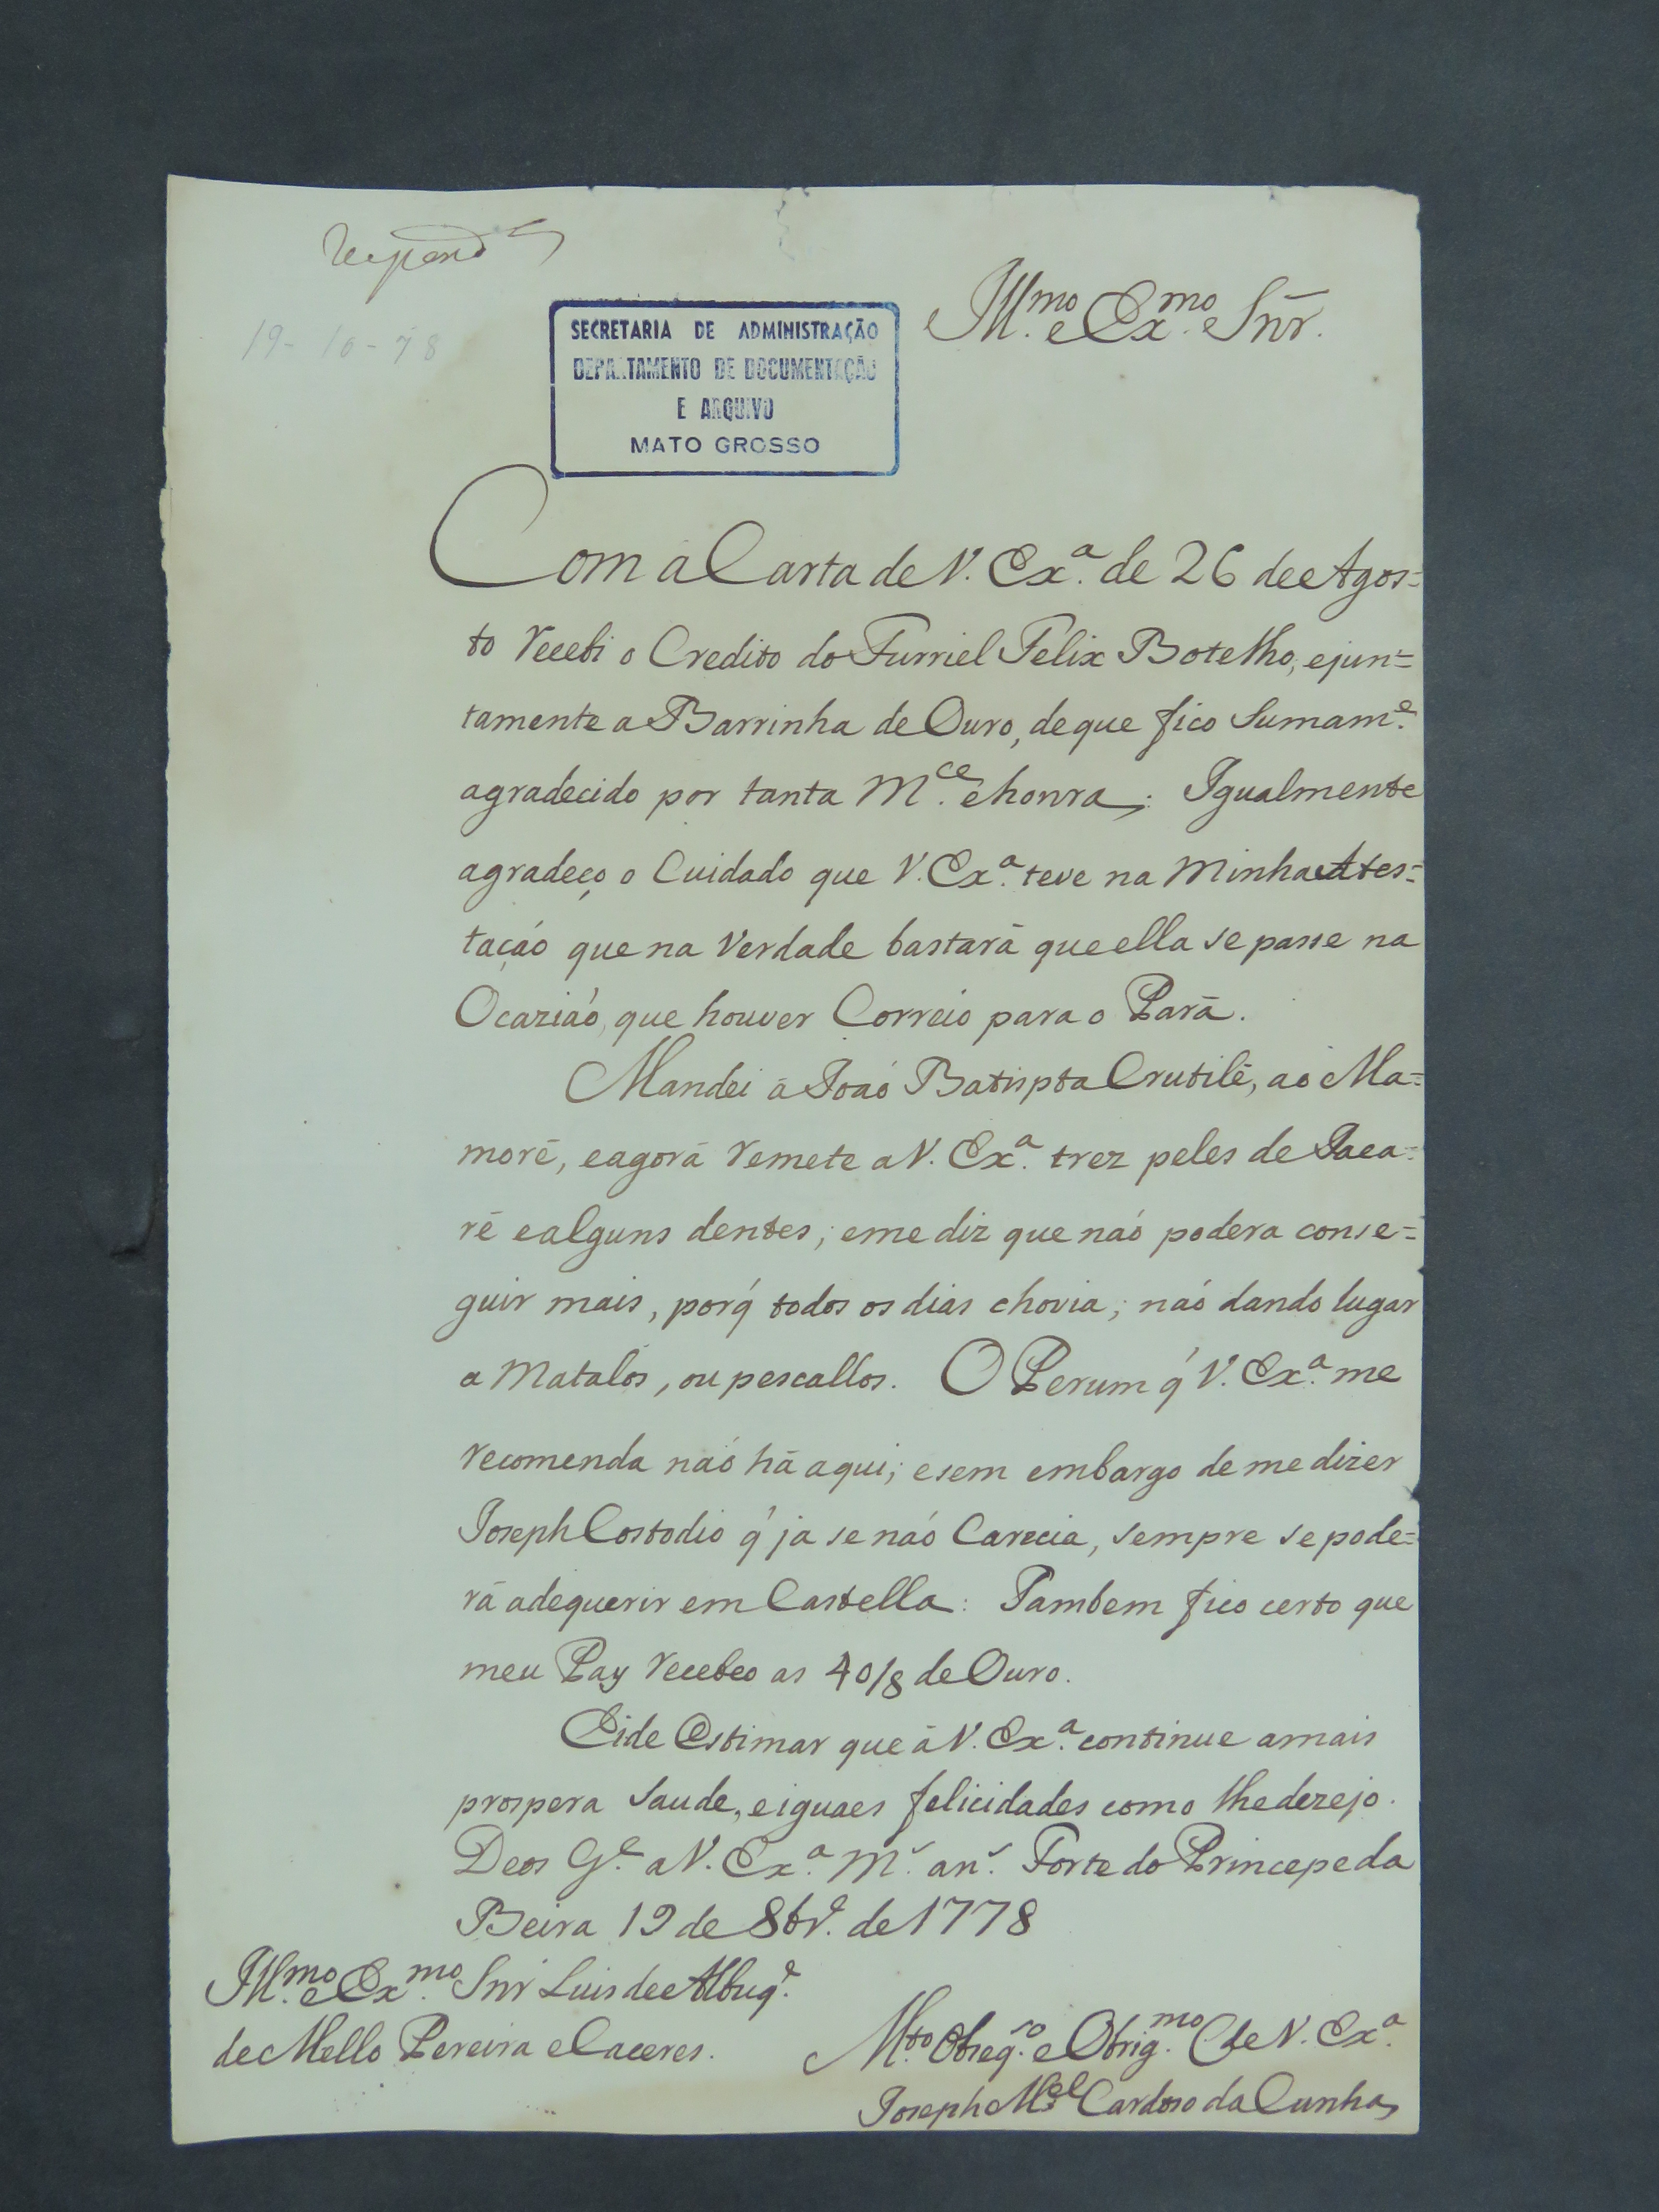 Respond.
19-10-78
Ill.mo e Ex.mo Snr.
SECRETARIA DE ADMINISTRAÇÃO
DEPARTAMENTO DE DOCUMENTAÇÃO
E ARQUIVO
MATO GROSSO
Com a Carta de V. Ex.ª de 26 de Agos=
to recebi o Credito do Furriel Felix Botelho, e jun=
tamente a Barrinha de Ouro, de que fico sumam.e
agradecido por tanta M.ce e honra; Igualmente
agradeço o Cuidado que V. Ex.ª teve na Minha Ates=
taçaó que na verdade bastarã que ella se passe na
Ocaziaó, que houver Correio para o Parã.
Mandei ã Joaó Batispta Crutilẽ, aó Ma=
morẽ, e agorã remete a V. Ex.ª trez peles de Jaca=
rẽ e alguns dentes; e me diz que naó podera conse=
guir mais, porq́ todos os dias chovia; naó dando lugar
a Matalos, ou pescallos. O Perum q́ V. Ex.ª me
recomenda naó hã aqui; e sem embargo de me dizer
Joseph Costodio q́ ja se naó Carecia, sempre se pode=
rã adequerir em Castella: Tambem fico certo que
meu Pay recebeo as 40/8 de Ouro.
Eide Estimar que ã V. Ex.ª continue a mais
prospera saude, e iguaes felicidades como lhe dezejo.
Deos G.e a V. Ex.ª M.s an.s Forte do Princepe da
Beira 19 de 8br.o de 1778
Ill.mo e Ex.mo Snr Luis de Albuq.e
de Mello Pereira e Caceres.
M.to Obseq.so e Obrig.mo C de V. Ex.ª
Joseph M.el Cardoso da Cunha